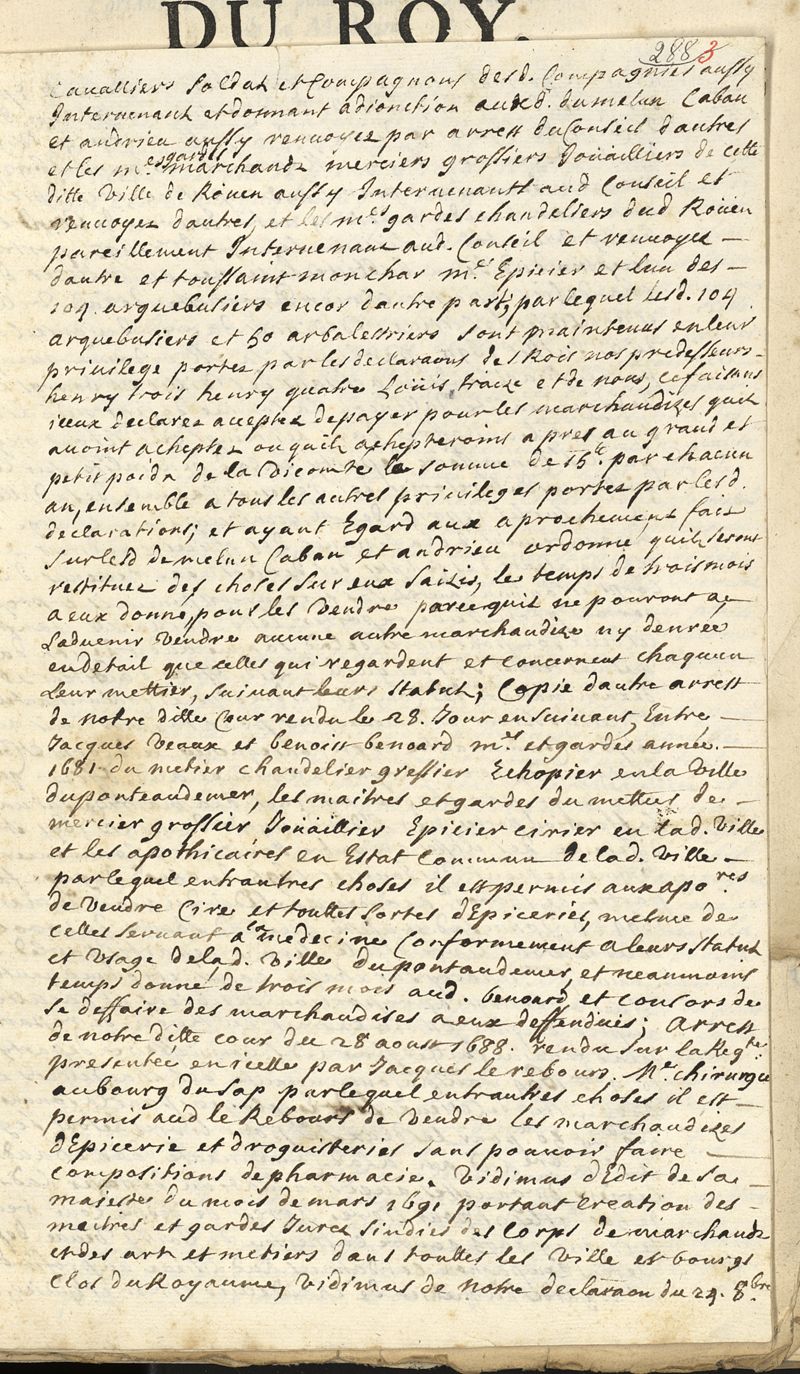 DU ROY.
288 3
Cavalliers soldat et Compagnons desd. Compagnies aussy
Intervenant et donnant adionction auxd. dumelun Caban
et andrieu aussy renvoyez par arrest du Conseil d'autres
et les m.es gardes marchandz merciers grossiers Joüailliers de cette
ditte ville de Roüen aussy Intervenants aud Conseil et
renvoyez dautres, et les m.es gardes chandeliers dud Roüen
pareillement Intervenant aud. Conseil et renvoyez —
dautre et toussaint monchar m.e Epicier et lun des —
104 arquebusiers encor dautre part, par lequel lesd. 104
arquebusiers et 50 arbalestriers sont maintenus en leur
privilege portez par les declaraons des Rois nos predesseurs
henry trois henry quatre Loüis traize et de nous, ce faisans
iceux declarez exceptez de payer pour les marchandizes quil
avoint acheptez ou quils achepteroins apres au grand et
petit poidz de la Vicomte la somme de 15 par chacun
an, ensemble a tous les autres privileges portez par lesd.
declarations; et ayant Egard aux aprochement fais
sur lesd de melun Caban et andrieu ordonne quils seront
restituez des choses sur eux saizis, le temps de trois mois
a eux donne, pour les vendre parce quil ne pouront a
Ladvenir vendre aucune autre marchandize ny denrée
en detail que celles qui regardent et concernent chaquun
Leur mettier, suivant leurs statut; Copie dautre arrest
de notre ditte Cour rendu le 28. Jour ensuivant, Entre —
Jacques Veaux et benoist benoard m.es et gardes année. —
1681 du metier chandelier gressier Echopier en la Ville
du ponteaudemer, les maitres et gardes du mettier de —
mercier grossier Joüaillier Epicier cirier en lad. Ville
et les apothicaires en Estat Commun de lad. Ville —
par lequel entrautres choses il est permis aux apo.res
de vendre Cire et touttes sortes d'Epiceries, mesme de
celles servant a la medecine Conformement a leurs statut
et usage de lad. Ville du pontaudemer, et neanmoins
temps donné de trois mois aud. benoard, et consors de
se deffaire des marchandises a eux deffenduës; Arrest
de notre ditte cour du 28 aoust 1688. rendu sur la Reg.te
presentée en icelle par Jacques le rebours, M.e chirurgie
au bourg du Sap par lequel entrautres choses il est —
permis aud le Rebours de vendre les marchandizes
d'Epicerie et droguisteries sans pouvoir faire —
compositions de pharmacie. Vidimus d'Edit de Sa —
majesté du mois de mars 1691 portant Creation des —
maitres et gardes Jurez sindics des Corps de marchandz
et des art et metiers dans touttes les ville et bourgs
Clos du Royaume, Vidimus de notre declaraon du 24. 8.bre